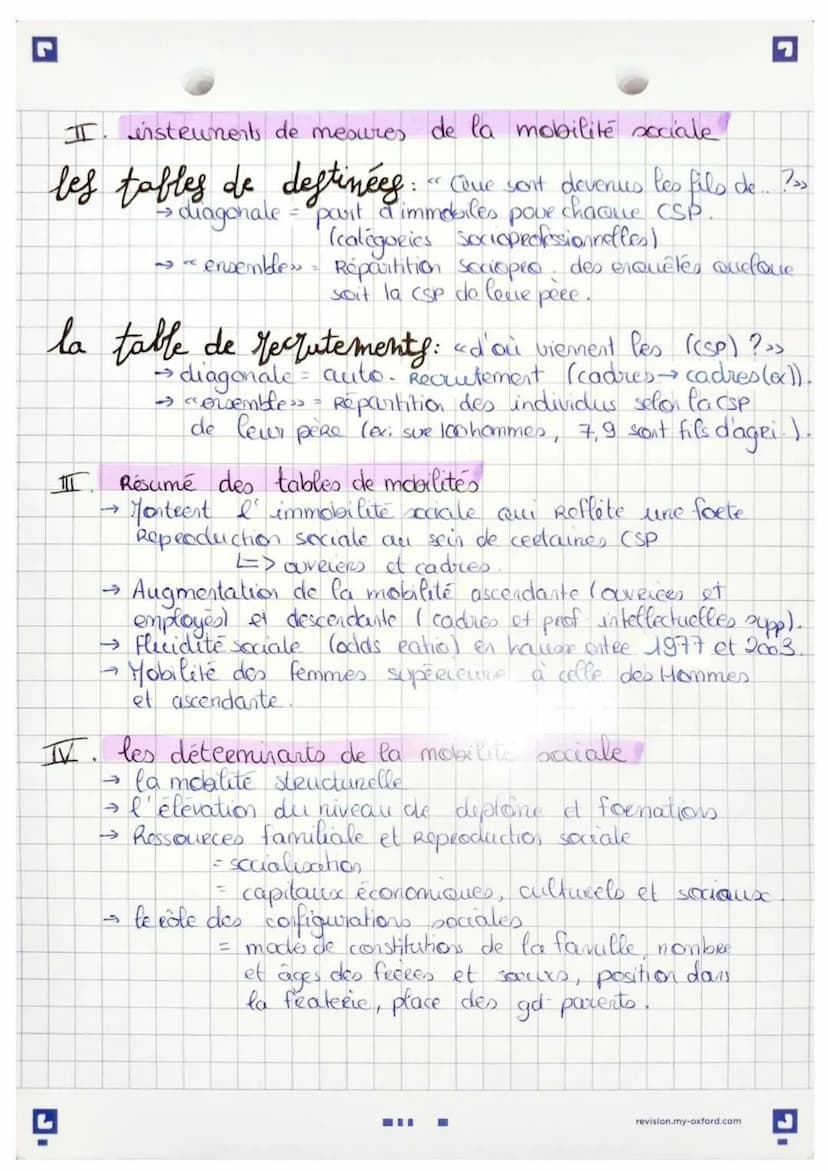 II. instruments de mesures de la mobilité sociale
les tables de destinées : « Que sont devenus les fils de.. ?»
→ diagonale = part d'immobiles pour chaque CSP.
(catégories socioprofessionnelles)
→ « ensemble » = Répartition sociopro. des enquêtés quelque
soit la CSP de leur père.
la table de recrutements : « d'où viennent les (CSP) ? »
→ diagonale = auto-recrutement (cadres → cadres (ex)).
→ « ensemble » = Répartition des individus selon la CSP
de leur père (ex: sur 100 hommes, 7,9 sont fils d'agri.).
III. Résumé des tables de mobilités
→ Montrent l'immobilité sociale qui reflète une forte
Reproduction sociale au sein de certaines CSP
↳> ouvriers et cadres.
→ Augmentation de la mobilité ascendante (ouvrières et
employés) et descendante (cadres et prof intellectuelles supp).
→ Fluidité sociale (odds ratio) en hausse entre 1977 et 2003.
→ Mobilité des femmes supérieure à celle des Hommes
et ascendante.
IV. les déterminants de la mobilité sociale
→ la mobilité structurelle
→ l'élévation du niveau de diplôme et formations
→ Ressources familiale et Reproduction sociale
= socialisation
= capitaux économiques, culturels et sociaux.
→ le rôle des configurations sociales
= modes de constitutions de la famille, nombre
et âges des frères et sœurs, position dans
la fraterie, place des gd-parents.
revision.my-oxford.com